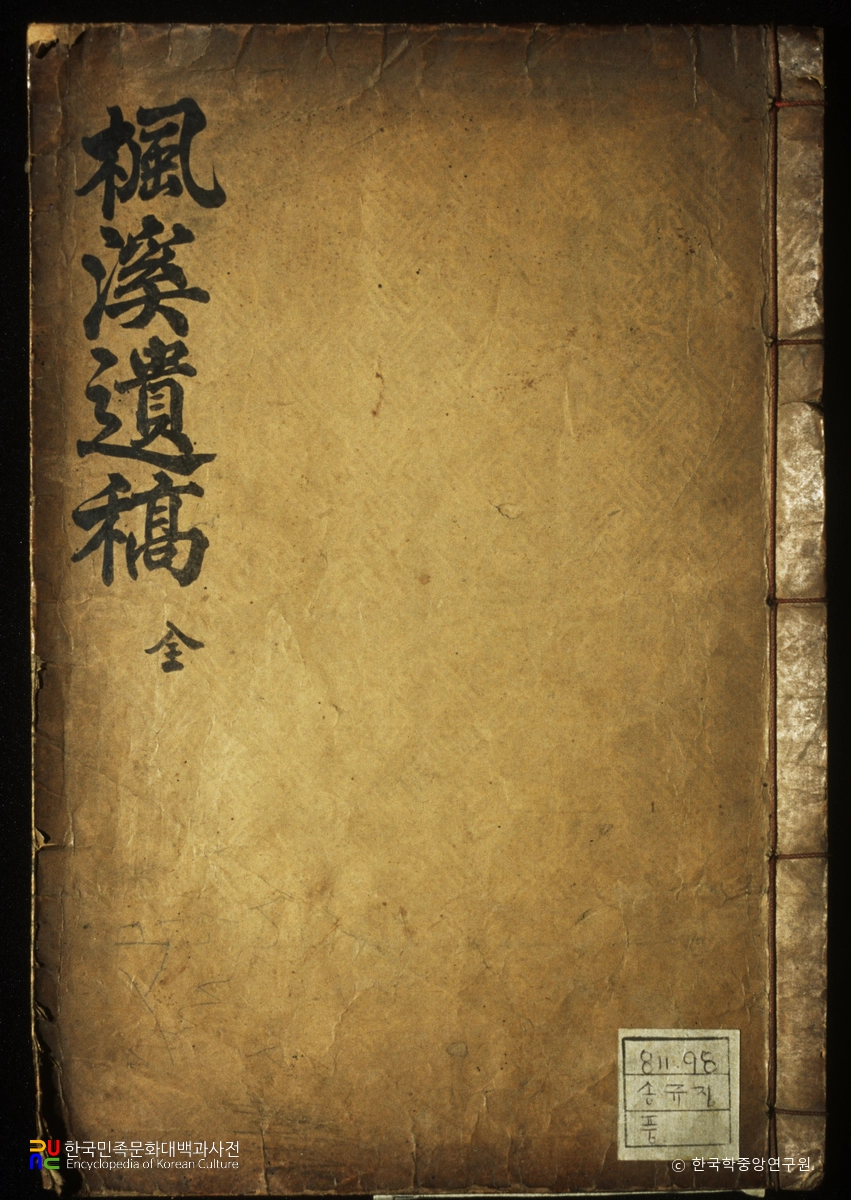 楓溪遺稿
全
811.98
송규렴
풍
한국민족문화대백과사전
Encyclopedia of Korean Culture
© 한국학중앙연구원